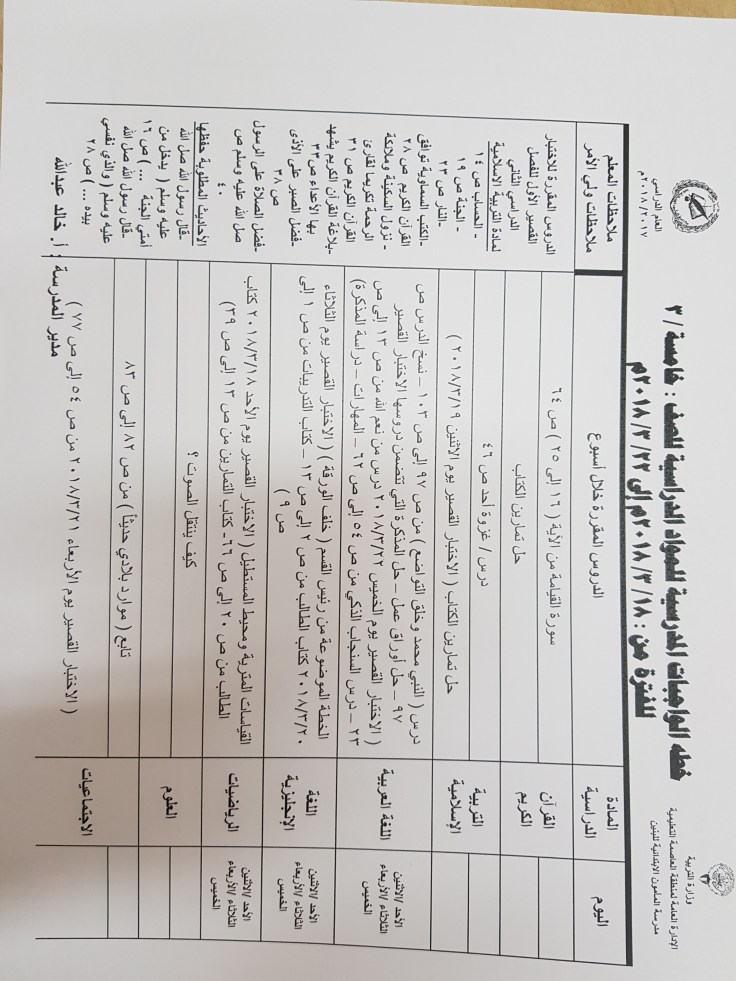 وزارة التربية
الإدارة العامة لمنطقة العاصمة التعليمية
مدرسة المأمون الابتدائية للبنين
العام الدراسي
٢٠١٨/٢٠١٧م
خطه الواجبات المدرسية للمواد الدراسية للصف : خامسة / ٣
للفترة من : ١٨ / ٣ / ٢٠١٨م إلى ٢٢ / ٣ / ٢٠١٨م
اليوم
المادة الدراسية
الدروس المقررة خلال أسبوع
ملاحظات المعلم
ملاحظات ولي الأمر
القرآن الكريم
سورة القيامة من الآية ( ١٦ إلى ٢٥ ) ص ٦٤
حل تمارين الكتاب
التربية الإسلامية
درس / غزوة أحد ص ٤٦
حل تمارين الكتاب ( الاختبار القصير يوم الاثنين ٢٠١٨/٣/١٩ )
الأحد /الاثنين
الثلاثاء /الأربعاء
الخميس
اللغة العربية
درس ( النبي محمد وخلق التواضع ) من ص ٩٧ إلى ص ١٠٣ – نسخ الدرس ص
٩٧ – حل أوراق عمل – حل المذكرة التي تتضمن دروسها الاختبار القصير
( الاختبار القصير يوم الخميس ٢٠١٨/٣/٢٢ درس من نعم الله من ص ١٣ إلى ص
٢٣ – درس السنجاب الذكي من ص ٥٤ إلى ص ٦٢ – المهارات – دراسة المذكرة)
الأحد /الاثنين
الثلاثاء /الأربعاء
الخميس
اللغة الإنجليزية
الخطة الموضوعة من رئيس القسم ( خلف الورقة ) ( الاختبار القصير يوم الثلاثاء
٢٠١٨/٣/٢٠ كتاب الطالب من ص ٢ إلى ص ١٣ – كتاب التدريبات من ص ١ إلى
ص ٩ )
الأحد /الاثنين
الثلاثاء /الأربعاء
الخميس
الرياضيات
القياسات المترية ومحيط المستطيل ( الاختبار القصير يوم الأحد ٢٠١٨/٣/١٨ كتاب
الطالب من ص ٢٠ إلى ص ٦٦- كتاب التمارين من ص ١٣ إلى ص ٣٩)
العلوم
كيف ينتقل الصوت ؟
الاجتماعيات
تابع ( موارد بلادي حديثاً ) من ص ٨٢ إلى ص ٨٣
( الاختبار القصير يوم الأربعاء ٢٠١٨/٣/٢١ من ص ٥٤ إلى ص ٧٧ )
الدروس المقررة للاختبار
القصير الأول للفصل
الدراسي الثاني
لمادة التربية الإسلامية
-الحساب ص ١٤
- الجنة ص ١٩
-النار ص ٢٣
-الكتب السماوية توافق
القرآن الكريم ص ٢٨
- نزول السكينة وملائكة
الرحمة تكريما لقارئ
القرآن الكريم ص ٣١
-بلاغة القرآن الكريم يشهد
بها الأعداء ص ٣٣
-فضل الصبر على الأذى
ص ٣٨
-فضل الصلاة على الرسول
صل الله عليه وسلم ص
٤٠
الأحاديث المطلوبة حفظها
-قال رسول الله صل الله
عليه وسلم ( يدخل من
أمتي الجنة ... ) ص ١٦
-قال رسول الله صل الله
عليه وسلم ( والذي نفسي
بيده ... ) ص ٢٨
مدير المدرسة : أ. خالد عبدالله